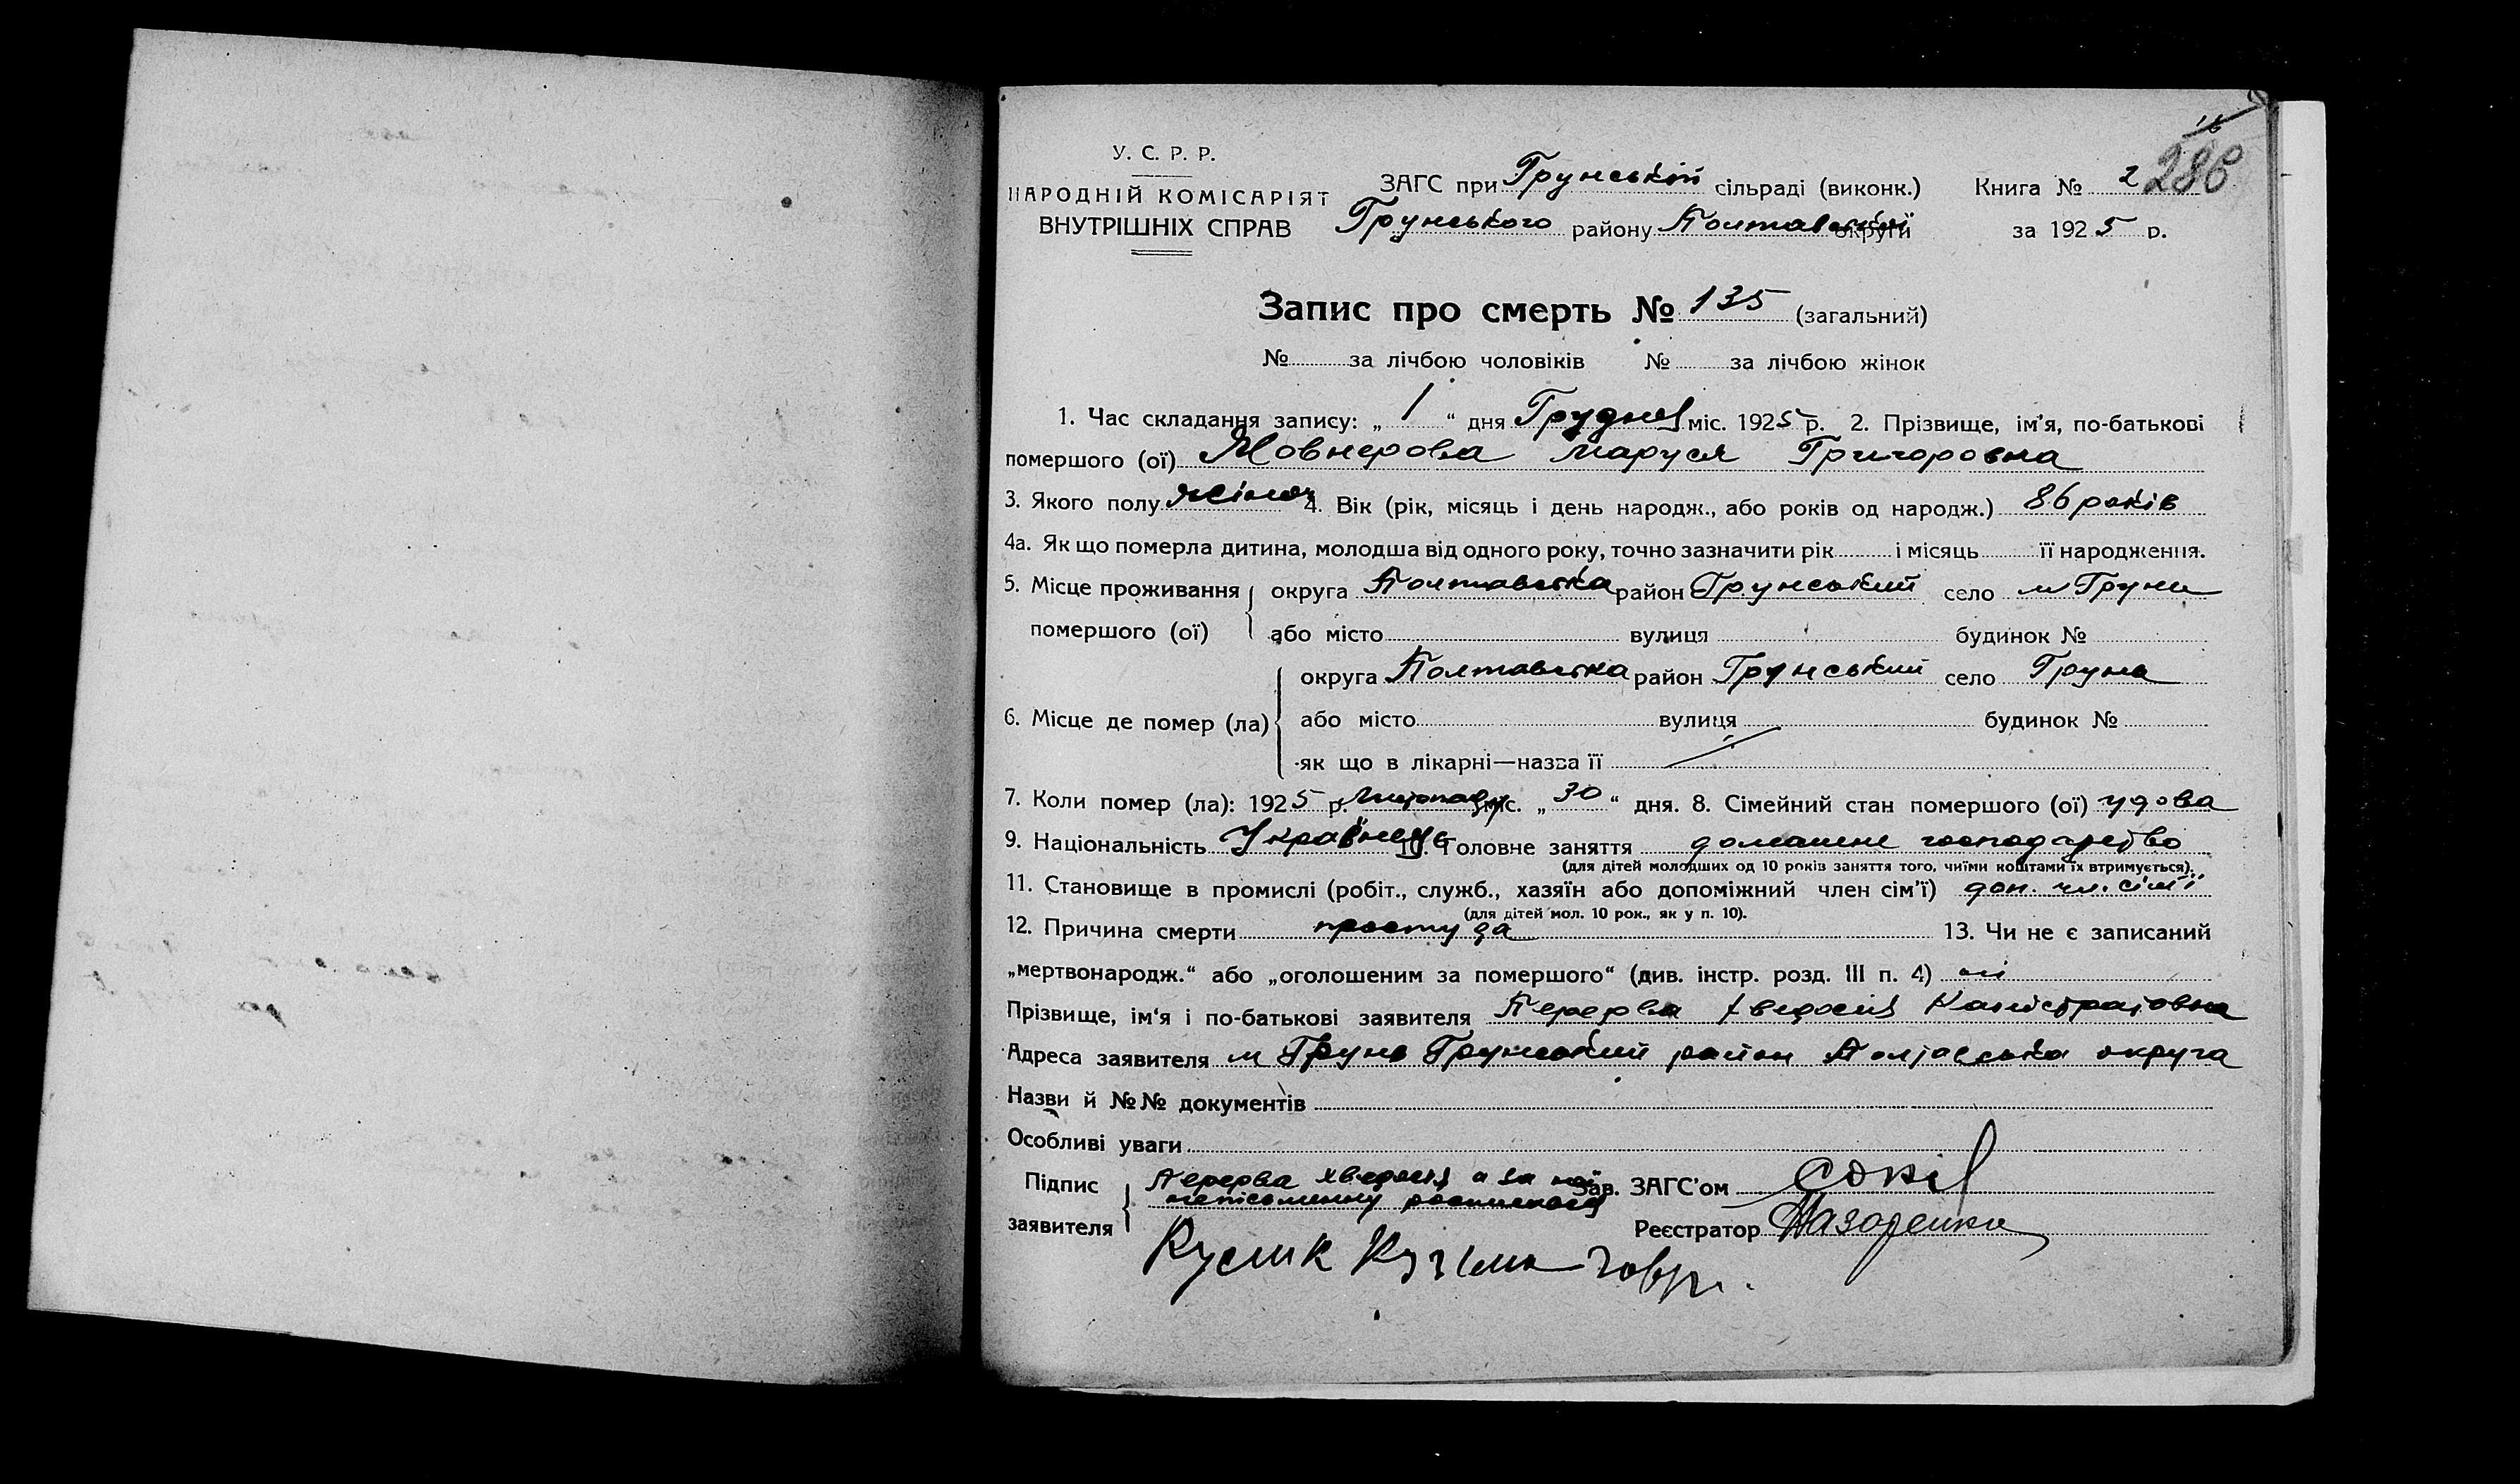 16
286
У. С. Р. Р.
НАРОДНІЙ КОМІСАРІЯТ
ВНУТРІШНІХ СПРАВ
ЗАГС при Грунській сільраді (виконк.) Книга № 2
Грунського району Полтавської округи за 1925 р.
Запис про смерть № 135 (загальний)
№ за лічбою чоловіків № за лічбою жінок
1. Час складання запису: „ 1 “ дня Грудня міс. 1925 р. 2. Прізвище, ім’я, по-батькові
помершого (ої) Маруся Григоровна
3. Якого полу жіноч 4. Вік (рік, місяць і день народж., або років од народж.) 86 років
4а. Як що померла дитина, молодша від одного року, точно зазначити рік і місяць її народження.
5. Місце проживання округа Полтавська район Грунський село м Груни
помершого (ої) або місто вулиця будинок №
округа Полтавська район Грунський село Грунь
6. Місце де помер (ла) або місто вулиця будинок №
як що в лікарні—назва її
7. Коли помер (ла): 1925 р. Листопаду міс. „ 30 “ дня. 8. Сімейний стан помершого (ої) удова
9. Національність Українець 10. Головне заняття домашне господарство
(для дітей молодших од 10 років заняття того, чиїми коштами їх втримується).
11. Становище в промислі (робіт., служб., хазяїн або допоміжний член сім’ї) доп. чл. сім’ї
(для дітей мол. 10 рок., як у п. 10).
12. Причина смерти простуда 13. Чи не є записаний
„мертвонародж.“ або „оголошеним за помершого“ (див. інстр. розд. III п. 4) ні
Прізвище, ім’я і по-батькові заявителя Перерва Хведосія Калістратовна
Адреса заявителя м Грунь Грунський район Полтавська округа
Назви й №№ документів
Особливі уваги
Підпис Перерва Хведосія а за неї Зав. ЗАГС’ом Сокіл
неписьменну росписався
заявителя Реєстратор Назаренко
Кузьма